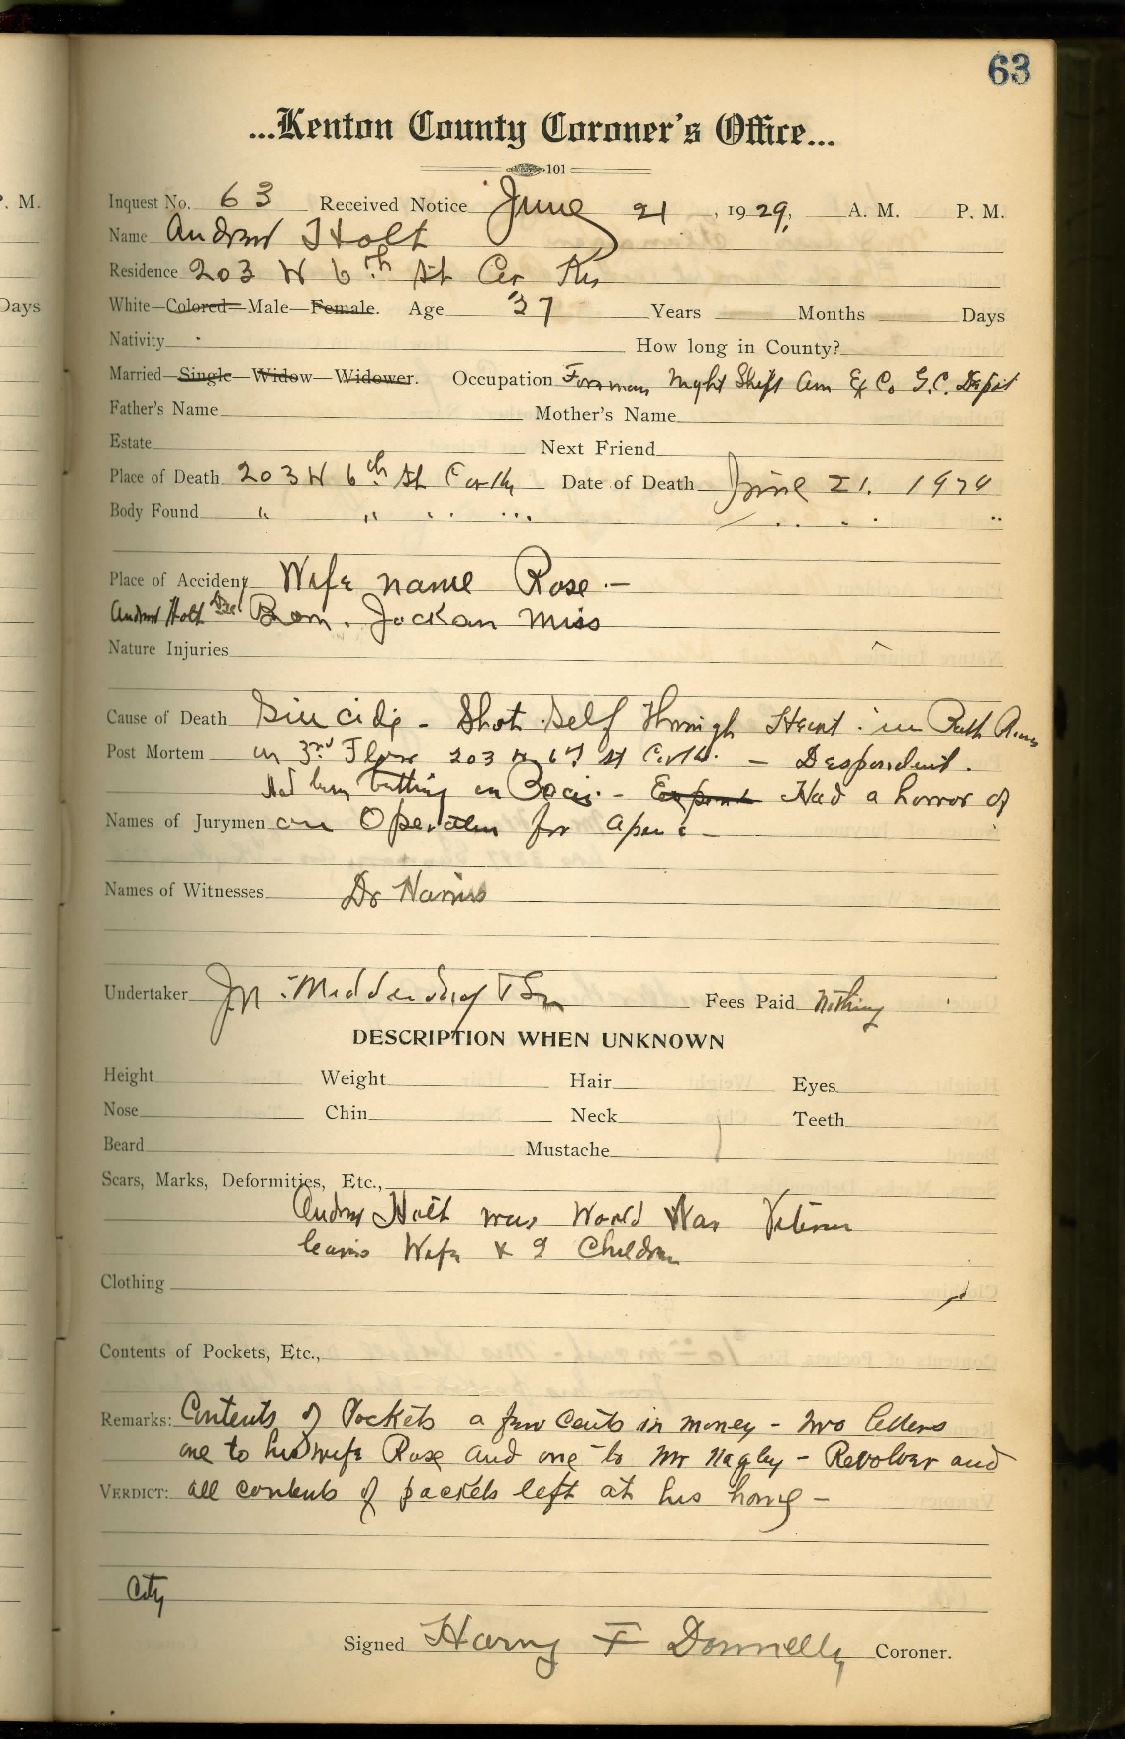 63
...Kenton County Coroner's Office...
101
P. M.
Inquest No. 63 Received Notice June 21, 1929, A. M. P. M.
Name Andrew Holt
Residence 203 W 6th St Cov Ky
Days
White—Colored—Male—Female. Age 37 Years Months Days
Nativity How long in County?
Married—Single—Widow—Widower. Occupation Forman Night Shift Am Ex Co G.C. Depot
Father's Name Mother's Name
Estate Next Friend
Place of Death 203 W 6th St Cov Ky Date of Death June 21. 1929
Body Found " " " " " " " "
Place of Accident Wife name Rose.—
Andrew Holt Born. Jackson Miss
Nature Injuries
Cause of Death Suicide - Shot Self Through Heart in Bath Room
Post Mortem in 3rd Floor 203 W 6th St Cov Ky. — Despondent.
Had been betting on Races - Had a horror of
Names of Jurymen an Operation for
Names of Witnesses Dr Harris
Undertaker Jn Middendorf & Son Fees Paid Nothing
DESCRIPTION WHEN UNKNOWN
Height Weight Hair Eyes
Nose Chin Neck Teeth
Beard Mustache
Scars, Marks, Deformities, Etc.,
Andrew Holt was World War Veteran
leaves Wife & Children
Clothing
Contents of Pockets, Etc.,
Remarks: Contents of Pockets a few Cents in money - two letters
one to his wife Rose and one to Mr Nagley - Revolver and
VERDICT: all contents of pockets left at his home -
City
Signed Harry F Donnelly Coroner.